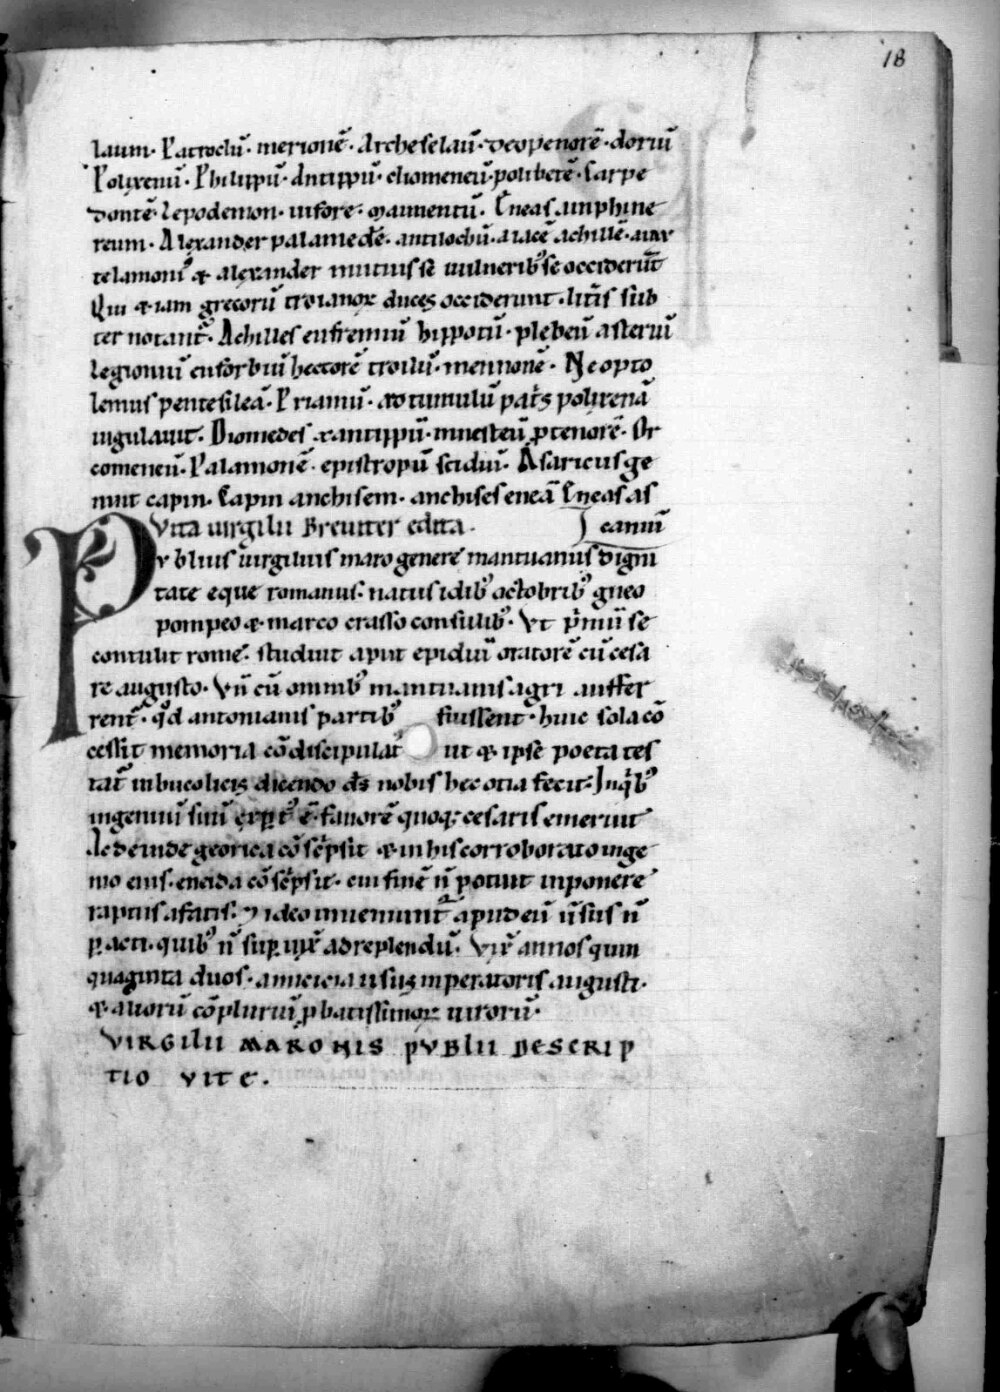 18
laum· Patroclū· merionē· Archeselaū· deopenorē· doriū
Polixenū· Philippū· Antippū· cliomeneū· polibetē· Sarpe
dontē· lepodemon· uifore· Maimentū· Eneas amphime
reum· Alexander palamedē· antilochū· aiacē achillē· aiax
telamoni᷒ & alexander mutuis sē uulnerib᷒ se occiderūt
Qui & iam grecorū troianoꝝ duces occiderunt· litīs sub
ter notant᷒· Achilles eufremiū hippotū· plebeū asteriū
legioniū euforbiū hectorē troilū· mennonē· Neopto
lemus pentesileā· Priamū· ad tumulū patis polixenā
iugulauit· Diomedes xantippū· mnesteū ꝓtenorē· Or
comeneū· Palamonē· epistropū scidiū· Asaricus ge
nuit capin· Capin anchisem· anchises eneā Eneas as
Vita uirgilii Breuiter edita· caniū
Pvblius uirgilius maro genere mantuanus digni
tate eque romanus· natus idib᷒ octobrib᷒ gneo
pompeo & marco crasso consulib᷒· Vt p̄mū se
contulit rome· studuit aput epidiū oratorē cū cesa
re augusto· Vn̄ cū omnib᷒ mantuanis agri auffer
rent᷒· qd̄ antonianis partib᷒ fauissent· huic sola cō
cessit memoria cōdiscipulat᷒ ut & ipse poeta tes
tat᷒ in bucolicis dicendo ds̄ nobis hec otia fecit· Inq̄b᷒
ingeniū suū exꝑt᷒ ē· fauorē quoq; cesaris emeruit
Ac deinde georica cōscͥpsit & in his corroborato inge
nio eius· eneida cōscͥpsit· cui finē n̄ potuit inponere
raptus a fatis· ⁊ ideo inueniunt᷒ apud eū ūsus n̄
ꝑacti· quib᷒ n̄ suꝑ uix᷒ ad replendū· Vix᷒ annos quin
quaginta duos· amicicia usus inperatoris augusti·
& aliorū cōpluriū ꝓbatissimoꝝ uirorū·
VIRGILII MARONIS PVBLII DESCRIP
TIO VITE·